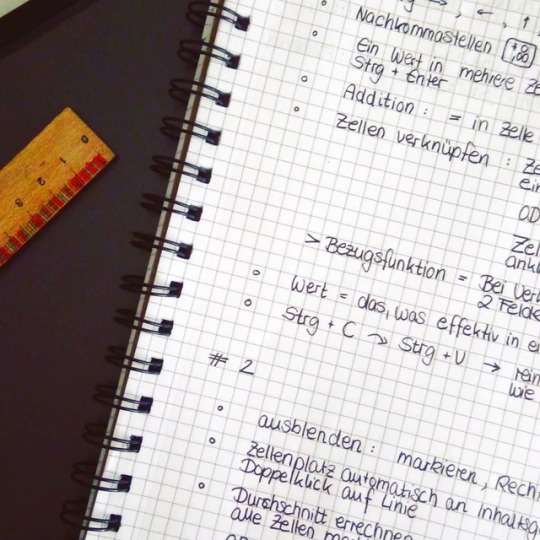 Nachkommastellen
Ein Wert in mehrere
Strg + Enter
Addition : = in Zelle
Zellen verknüpfen :
> Bezugsfunktion = Bei
2
Wert = das, was effektiv in
Strg + C → Strg + V →
wie
# 2
ausblenden : markieren,
Zellenplatz automatisch an
Doppelklick auf Linie
Durchschnitt errechnen
alle Zellen
0 1 2 3